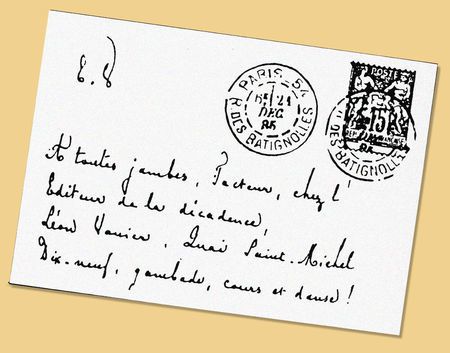 E. V
PARIS_54
21
DEC
85
R. DES BATIGNOLLES
POSTE
15
DES BATIGNOLLES
A toutes jambes, Facteur, chez l'
Editeur de la décadence,
Léon Vanier, Quai Saint-Michel
Dix-neuf, gambade, cours et danse !